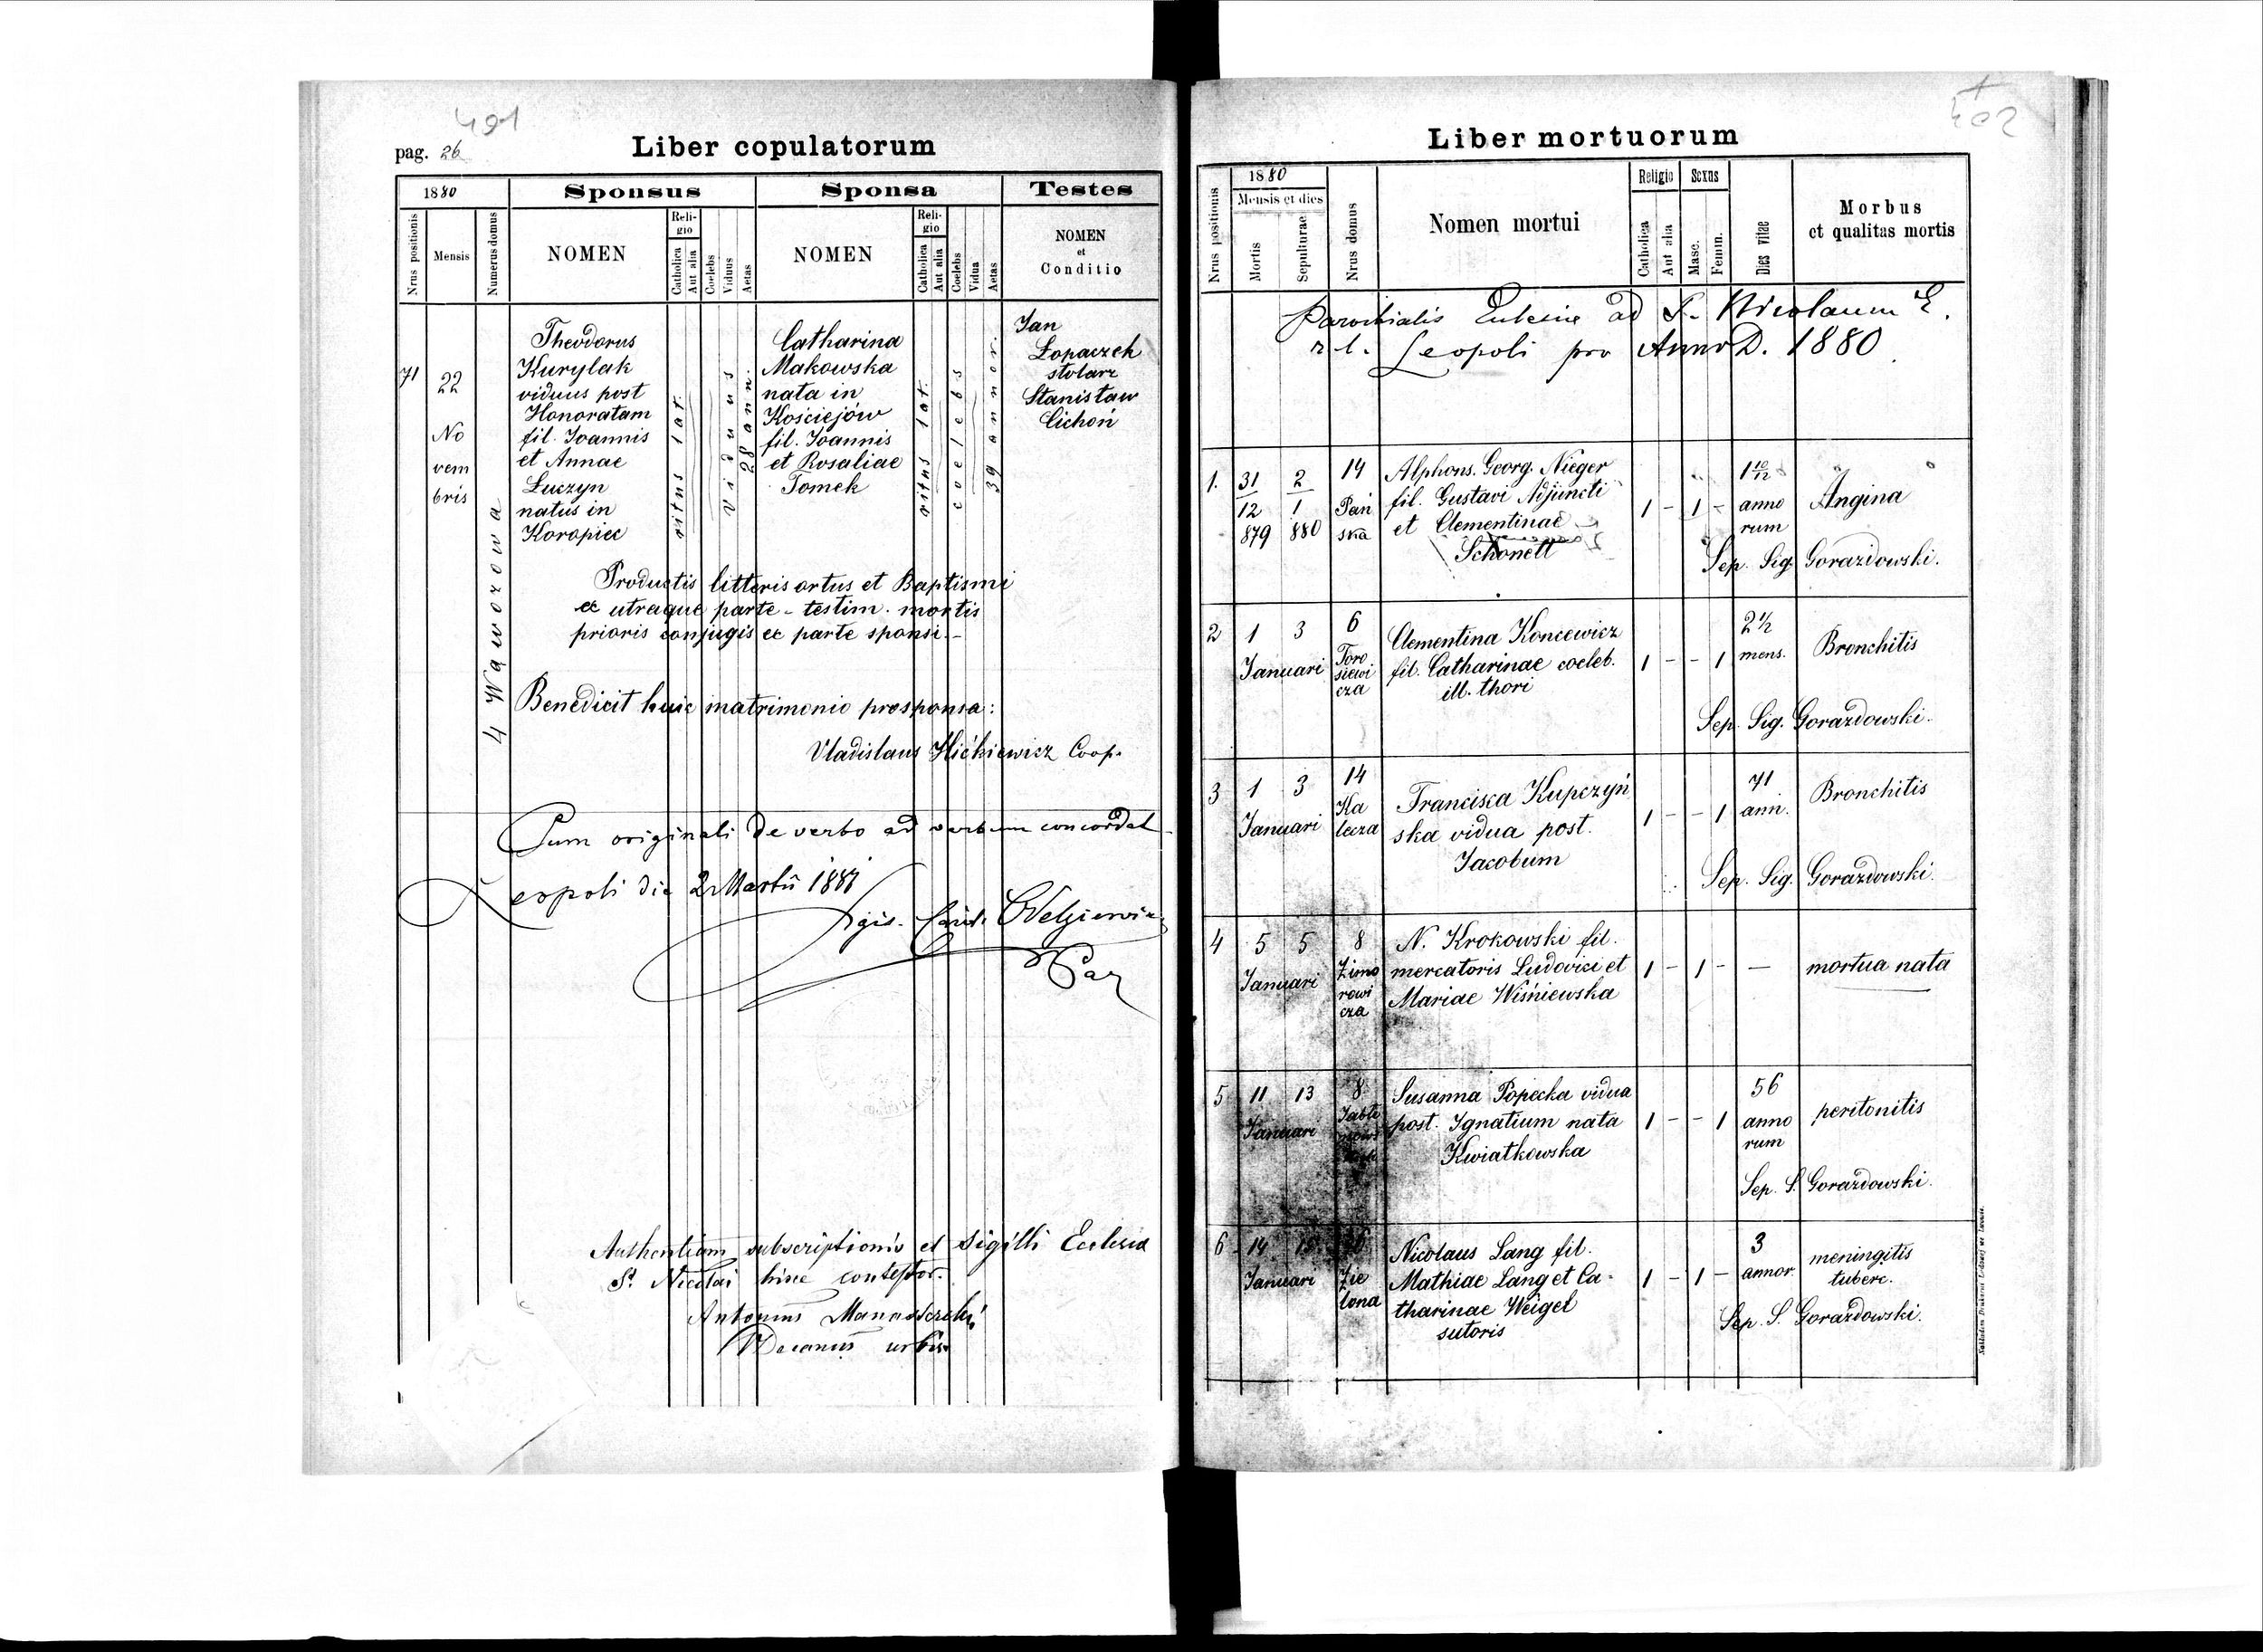 491
pag. 26
Liber copulatorum
1880
Sponsus
Sponsa
Testes
Nrus positionis
Mensis
Numerus domus
NOMEN
Reli-
gio
Catholica
Aut alia
Coelebs
Viduus
Aetas
NOMEN
Reli-
gio
Catholica
Aut alia
Coelebs
Vidua
Aetas
NOMEN
et
Conditio
71
22
No
vem
bris
4 Wąwozowa
Theodorus
Kurylak
viduus post
Honoratam
fil. Joannis
et Annae
Luczyn
natus in
Koropiec
ritus lat.
Viduus
28 ann.
Catharina
Makowska
nata in
Kościejów
fil. Joannis
et Rosaliae
Tomek
ritus lat.
coelebs
39 annor.
Jan
Łopaczek
stolarz
Stanisław
Cichoń
Productis litteris ortus et Baptismi
ex utraque parte - testim. mortis
prioris conjugis ex parte sponsi.-
Benedicit huic matrimonio prosponsa:
Vladislaus Hićkiewicz Coop.
Cum originali de verbo ad verbum concordat
Leopoli die 2 Martii 1881
Par
Authentiam subscriptionis et sigilli Ecclesia
St. Nicolai hinc contestor.
Antonius
Decanus urbis
402
Liber mortuorum
Nrus positionis
1880
Mensis et dies
Mortis
Sepulturae
Nrus domus
Nomen mortui
Religio
Catholica
Aut alia
Sexus
Masc.
Femin.
Dies vitae
Morbus
et qualitas mortis
Parochialis Ecclesiae ad S. Nicolaum E.
r. l. Leopoli pro Anno D. 1880
1.
31
12
879
2
1
880
14
Pań
ska
Alphons. Georg. Nieger
fil. Gustavi Adjuncti
et Clementinae
Schönett
1 - 1 -
1 10/12
anno
rum
Angina
Sep. Sig. Gorazdowski.
2
1 3
Januari
6
Toro
siewi
cza
Clementina Koncewicz
fil. Catharinae coeleb.
ill. thori
1 - - 1
2 1/2
mens.
Bronchitis
Sep. Sig. Gorazdowski.
3
1 3
Januari
14
Ka
lecza
Francisca Kupczyń
ska vidua post.
Jacobum
1 - - 1
71
ann.
Bronchitis
Sep. Sig. Gorazdowski.
4
5 5
Januari
8
Zimo
rowi
cza
N. Krokowski fil.
mercatoris Ludovici et
Mariae Wiśniewska
1 - 1 -
—
mortua nata
5
11 13
Januari
8
Susanna Popecka vidua
post. Ignatium nata
Kwiatkowska
1 - - 1
56
anno
rum
peritonitis
Sep. S. Gorazdowski.
6
14 15
Januari
Zie
lona
Nicolaus Lang fil.
Mathiae Lang et Ca-
tharinae Weigel
sutoris
1 - 1 -
3
annor.
meningitis
tuberc.
Sep. S. Gorazdowski.